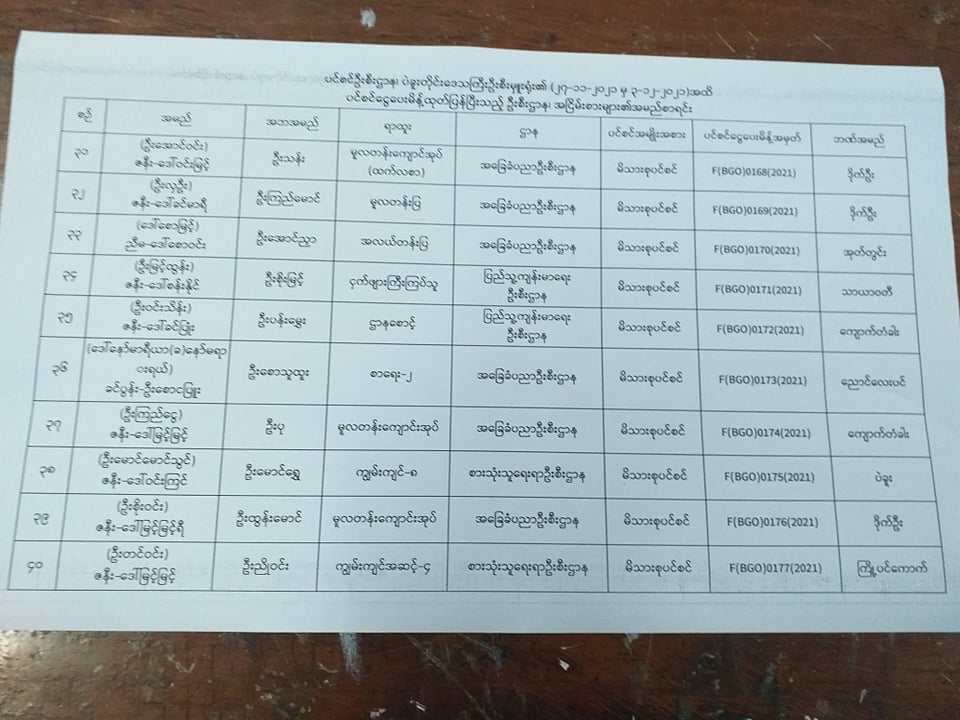 ပင်စင်ဦးစီးဌာန၊ ပဲခူးတိုင်းဒေသကြီးဦးစီးမှူးရုံး၏ (၂၇-၁၁-၂၀၂၁ မှ ၃-၁၂-၂၀၂၁)အထိ
ပင်စင်ငွေပေးမိန့်ထုတ်ပြန်ပြီးသည့် ဦးစီးဌာန၊ အငြိမ်းစားများ၏အမည်စာရင်း
စဉ် အမည် အဘအမည် ရာထူး ဌာန ပင်စင်အမျိုးအစား ပင်စင်ငွေပေးမိန့်အမှတ် ဘဏ်အမည်
၃၁ (ဦးအောင်ဝင်း) ဇနီး-ဒေါ်ဝင်းမြင့် ဦးသန်း မူလတန်းကျောင်းအုပ် (ထက်လစာ) အခြေခံပညာဦးစီးဌာန မိသားစုပင်စင် F(BGO)0168(2021) ဒိုက်ဦး
၃၂ (ဦးလှဦး) ဇနီး-ဒေါ်ခင်မာရီ ဦးကြည်မောင် မူလတန်းပြ အခြေခံပညာဦးစီးဌာန မိသားစုပင်စင် F(BGO)0169(2021) ဒိုက်ဦး
၃၃ (ဒေါ်စောမြင့်) ညီမ-ဒေါ်စောဝင်း ဦးအောင်ညွှာ အလယ်တန်းပြ အခြေခံပညာဦးစီးဌာန မိသားစုပင်စင် F(BGO)0170(2021) အုတ်တွင်း
၃၄ (ဦးမြင့်ထွန်း) ဇနီး-ဒေါ်စန်းနိုင် ဦးစိုးမြင့် ငှက်ဖျားကြီးကြပ်သူ ပြည်သူ့ကျန်းမာရေး ဦးစီးဌာန မိသားစုပင်စင် F(BGO)0171(2021) သာယာဝတီ
၃၅ (ဦးဝင်းသိန်း) ဇနီး-ဒေါ်ခင်ဖြူး ဦးပန်းမွှေး ဌာနစောင့် ပြည်သူ့ကျန်းမာရေး ဦးစီးဌာန မိသားစုပင်စင် F(BGO)0172(2021) ကျောက်တံခါး
၃၆ (ဒေါ်နော်မာရီယာ(ခ)နော်မရာ ခင်ပွန်း-ဦးစောငပြူး ဦးစောသူထူး စာရေး-၂ အခြေခံပညာဦးစီးဌာန မိသားစုပင်စင် F(BGO)0173(2021) ညောင်လေးပင်
၃၇ (ဦးကြည်ငွေ) ဇနီး-ဒေါ်မြင့်မြင့် ဦးပု မူလတန်းကျောင်းအုပ် အခြေခံပညာဦးစီးဌာန မိသားစုပင်စင် F(BGO)0174(2021) ကျောက်တံခါး
၃၈ (ဦးမောင်မောင်သွင်) ဇနီး-ဒေါ်ဝင်းကြင် ဦးမောင်ရွှေ ကျွမ်းကျင်-၈ စားသုံးသူရေးရာဦးစီးဌာန မိသားစုပင်စင် F(BGO)0175(2021) ပဲခူး
၃၉ (ဦးစိုးဝင်း) ဇနီး-ဒေါ်မြင့်မြင့်ရီ ဦးထွန်းမောင် မူလတန်းကျောင်းအုပ် အခြေခံပညာဦးစီးဌာန မိသားစုပင်စင် F(BGO)0176(2021) ဒိုက်ဦး
၄၀ (ဦးတင်ဝင်း) ဇနီး-ဒေါ်မြင့်မြင့် ဦးညိုဝင်း ကျွမ်းကျင်အဆင့်-၄ စားသုံးသူရေးရာဦးစီးဌာန မိသားစုပင်စင် F(BGO)0177(2021) ကြို့ပင်ကောက်